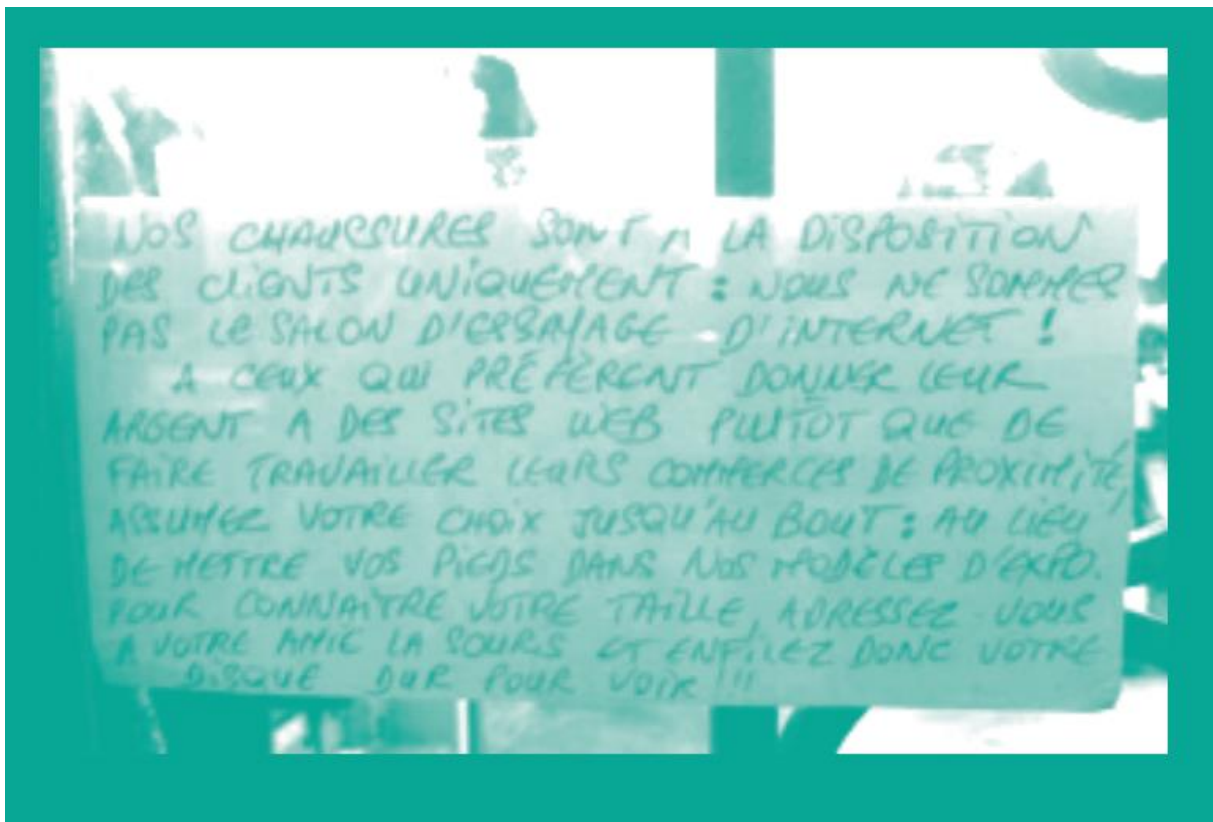 NOS CHAUSSURES SONT A LA DISPOSITION
DES CLIENTS UNIQUEMENT : NOUS NE SOMMES
PAS LE SALON D'ESSAYAGE D'INTERNET !
A CEUX QUI PRÉFÈRENT DONNER LEUR
ARGENT A DES SITES WEB PLUTÔT QUE DE
FAIRE TRAVAILLER LEURS COMMERCES DE PROXIMITÉ,
ASSUMEZ VOTRE CHOIX JUSQU'AU BOUT : AU LIEU
DE METTRE VOS PIEDS DANS NOS MODÈLES D'EXPO.
POUR CONNAITRE VOTRE TAILLE, ADRESSEZ VOUS
A VOTRE AMIE LA SOURIS ET ENFILEZ DONC VOTRE
DISQUE DUR POUR VOIR !!!